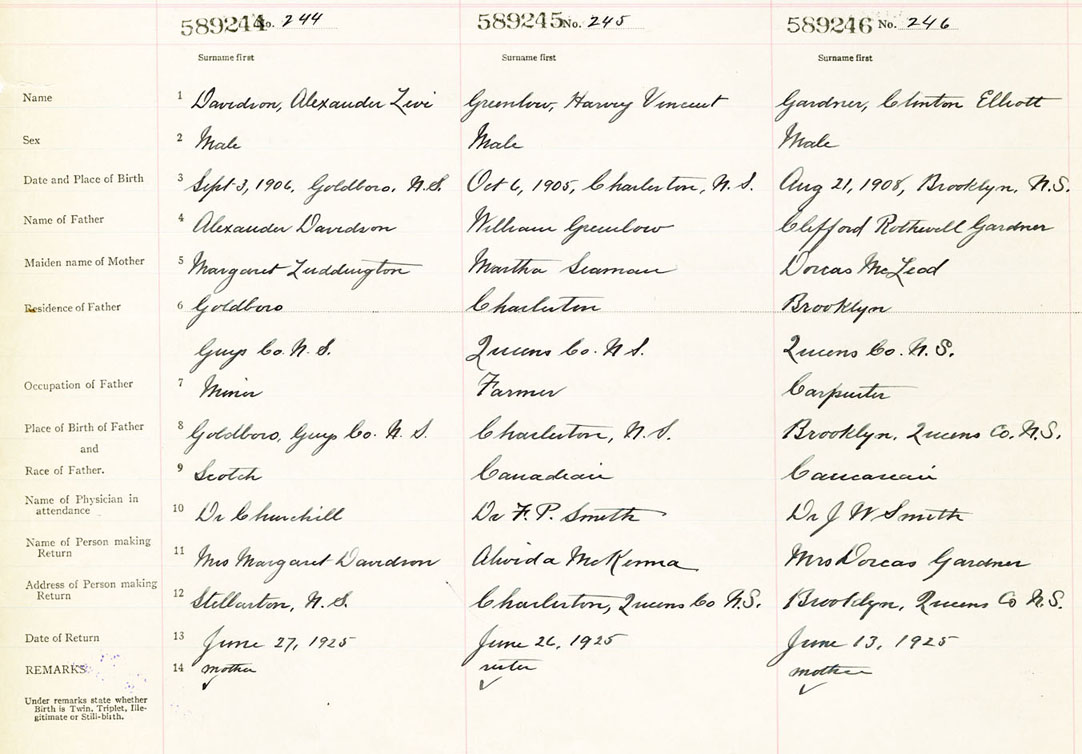 589244 No. 244 589245 No. 245 589246 No. 246
Surname first Surname first Surname first
Name 1 Davidson, Alexander Levi Greenlow, Harvey Vincent Gardner, Clinton Elliott
Sex 2 Male Male Male
Date and Place of Birth 3 Sept 3, 1906, Goldboro, N.S. Oct 6, 1905, Charleston, N.S. Aug 21, 1908, Brooklyn, N.S.
Name of Father 4 Alexander Davidson William Greenlow Clifford Rothwell Gardner
Maiden name of Mother 5 Margaret Luddington Martha Seaman Dorcas McLeod
Residence of Father 6 Goldboro Charleston Brooklyn
Guys Co. N.S. Queens Co. N.S. Queens Co. N.S.
Occupation of Father 7 Minor Farmer Carpenter
Place of Birth of Father 8 Goldboro, Guys Co. N.S. Charleston, N.S. Brooklyn, Queens Co. N.S.
and
Race of Father. 9 Scotch Canadian Caucasian
Name of Physician in
attendance 10 Dr Churchill Dr F. P. Smith Dr J W Smith
Name of Person making
Return 11 Mrs Margaret Davidson Alvida McKenna Mrs Dorcas Gardner
Address of Person making
Return 12 Stellarton, N.S. Charleston, Queens Co N.S. Brooklyn, Queens Co N.S.
Date of Return 13 June 27, 1925 June 26, 1925 June 13, 1925
REMARKS 14 mother sister mother
Under remarks state whether
Birth is Twin, Triplet, Ille-
gitimate or Still-birth.